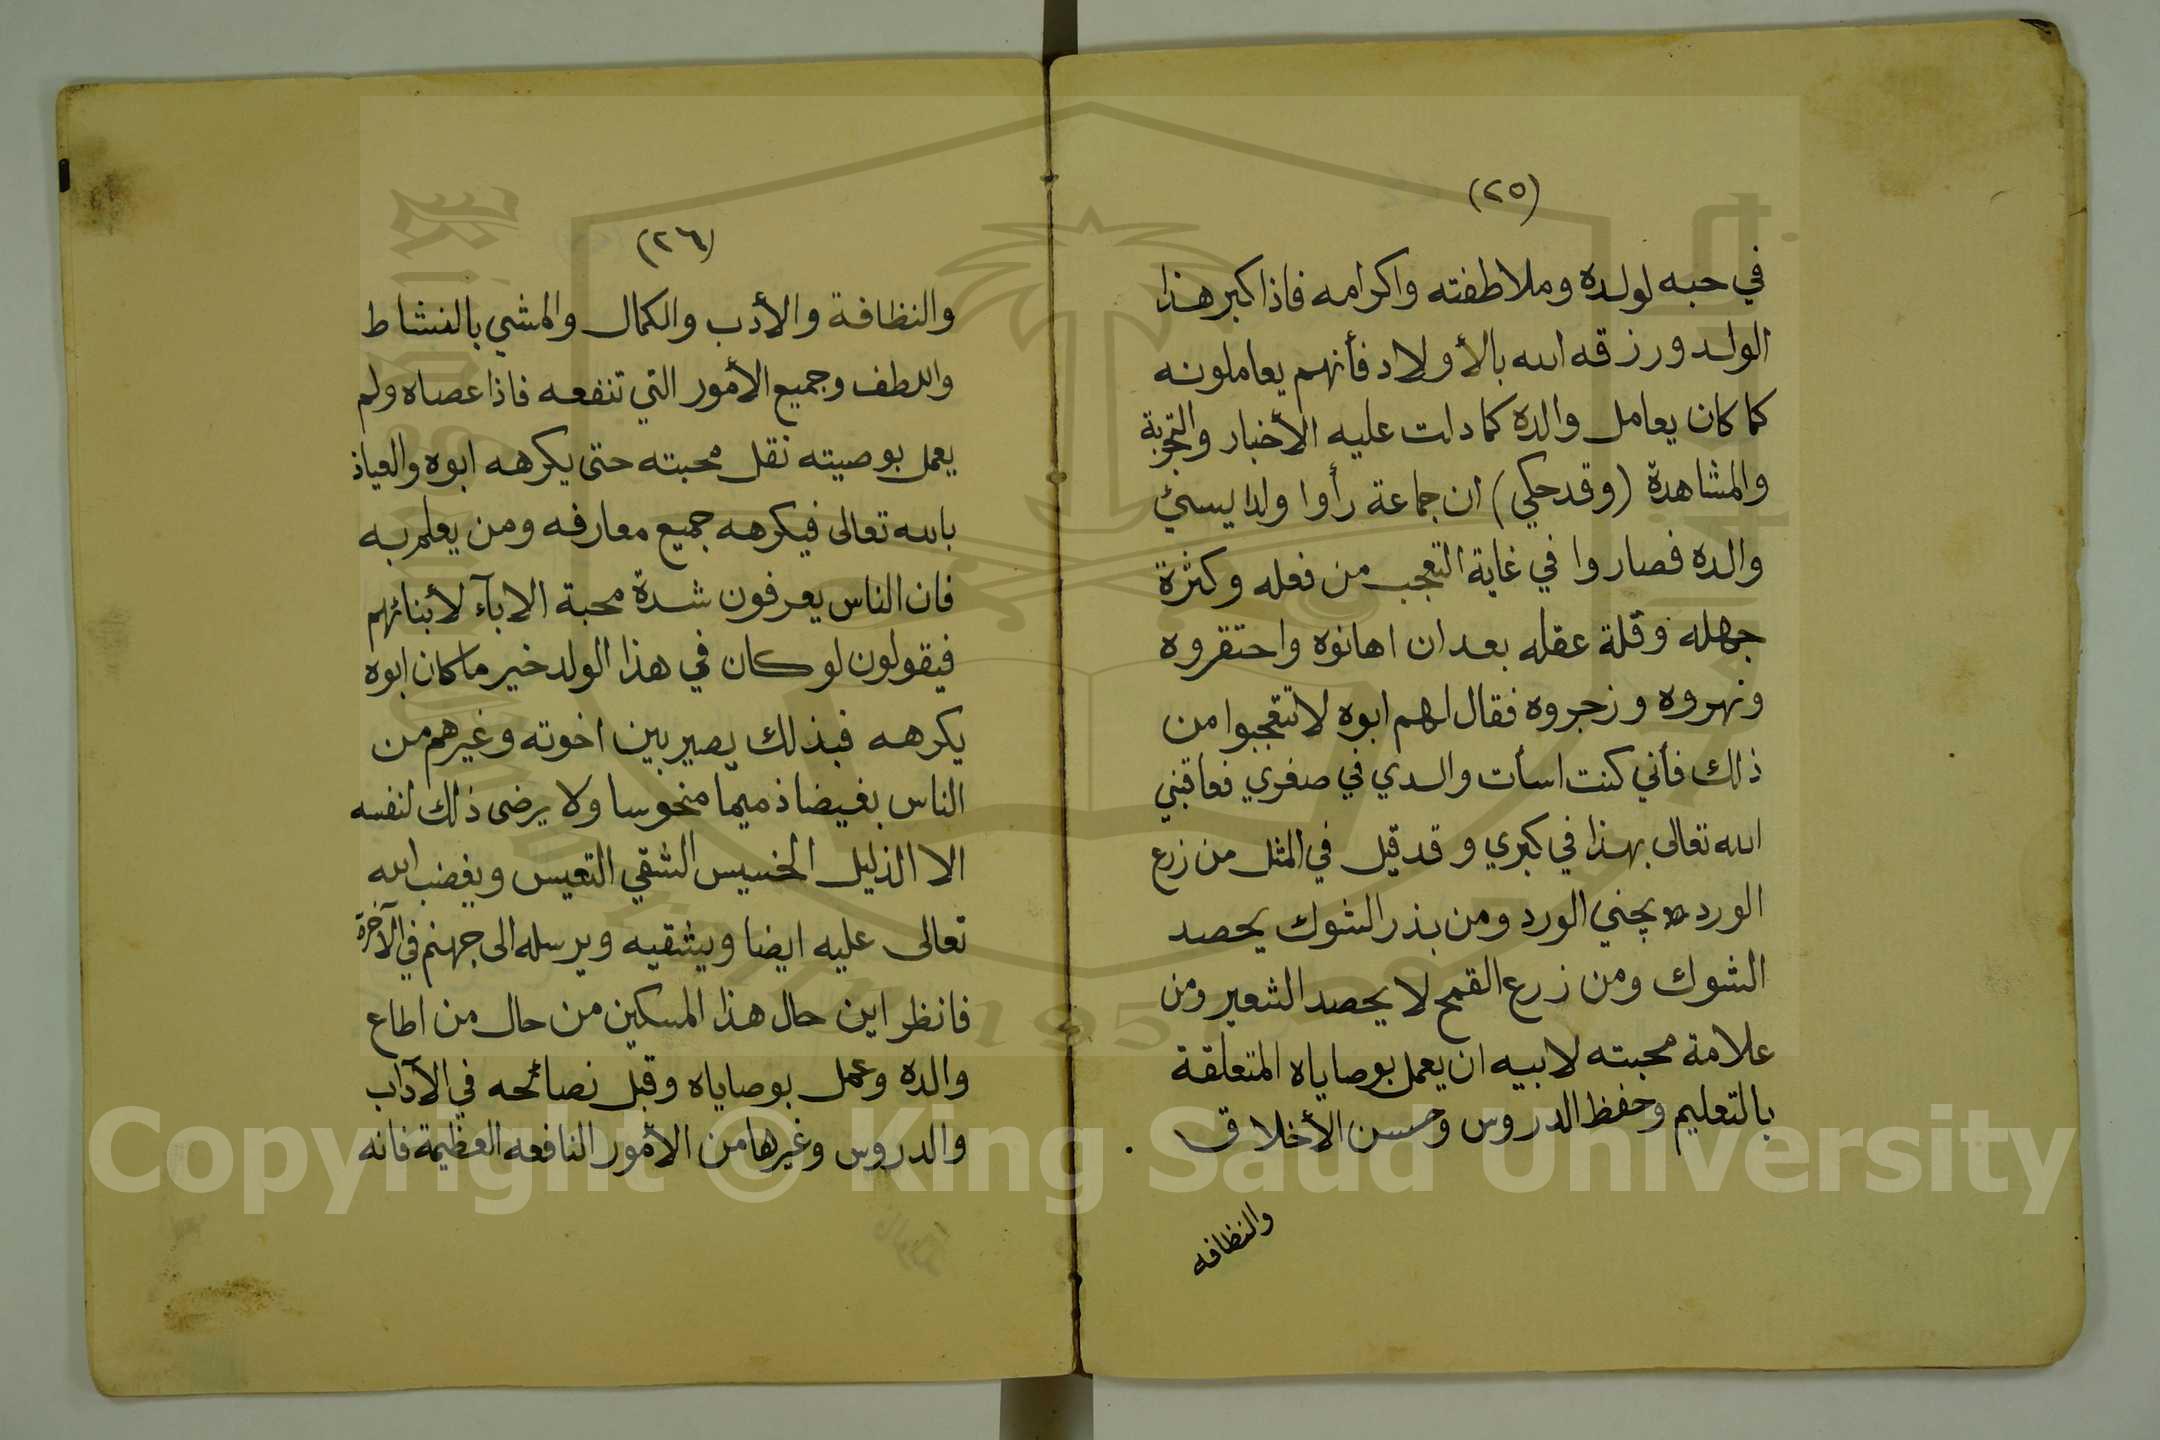 (٢٥)
في حبه لولده وملاطفته واكرامه فاذا كبر هذا
الولد ورزقه الله بالأولاد فأنهم يعاملونه
كما كان يعامل والده كما دلت عليه الأخبار والتجربة
والمشاهدة (وقد حكي) ان جماعة رأوا ولدا يسئ
والده فصاروا في غاية التعجب من فعله وكثرة
جهله وقلة عقله بعد ان اهانوه واحتقروه
ونهروه وزجروه فقال لهم ابوه لا تتعجبوا من
ذلك فأني كنت اسأت والدي في صغري فعاقبني
الله تعالى بهذا في كبري وقد قيل في المثل من زرع
الورد يجني الورد ومن بذر الشوك يحصد
الشوك ومن زرع القمح لا يحصد الشعير ومن
علامة محبته لابيه ان يعمل بوصاياه المتعلقة
بالتعليم وحفظ الدروس وحسن الأخلاق
والنظافه
(٢٦)
والنظافة والأدب والكمال والمشي بالنشاط
واللطف وجميع الأمور التي تنفعه فاذا عصاه ولم
يعمل بوصيته نقل محبته حتى يكرهه ابوه والعياذ
بالله تعالى فيكرهه جميع معارفه ومن يعلم به
فان الناس يعرفون شدة محبة الابآء لأبنائهم
فيقولون لو كان في هذا الولد خير ما كان ابوه
يكرهه فبذلك يصير بين اخوته وغيرهم من
الناس بغيضا ذميما منحوسا ولا يرضى ذلك لنفسه
الا الذليل الخسيس الشقي التعيس ويغضب الله
تعالى عليه ايضا ويشقيه ويرسله الى جهنم في الآخرة
فانظر اين حال هذا المسكين من حال من اطاع
والده وعمل بوصاياه وقبل نصائحه في الآداب
والدروس وغيرها من الأمور النافعه العظيمة فانه
Copyright © King Saud University